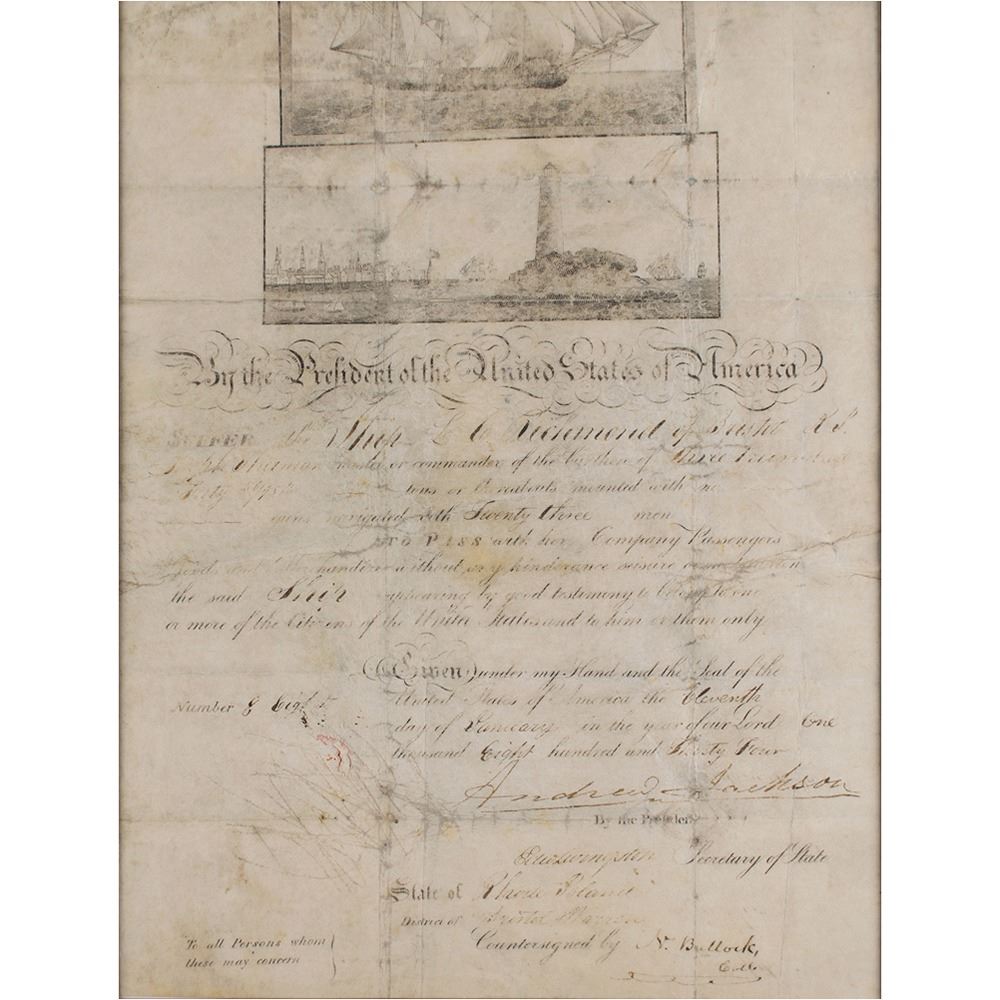 By the President of the United States of America
SUFFER the Ship L C Richmond of Bristol R I.
master or commander of the burthen of Three
Forty tons or thereabouts mounted with no
guns navigated with Twenty three men
TO PASS with her Company Passengers
Goods and Merchandize without any hinderance seisure or molestation
the said Ship appearing by good testimony to belong to one
or more of the Citizens of the United States and to him or them only
Given under my Hand and the Seal of the
United States of America the Eleventh
Number 8 Eight
day of January in the year of our Lord One
thousand Eight hundred and Thirty Four
Andrew Jackson
By the President
Edw Livingston Secretary of State
State of Rhode Island
District of Bristol Warren
Countersigned by N. Bullock,
To all Persons whom
these may concern